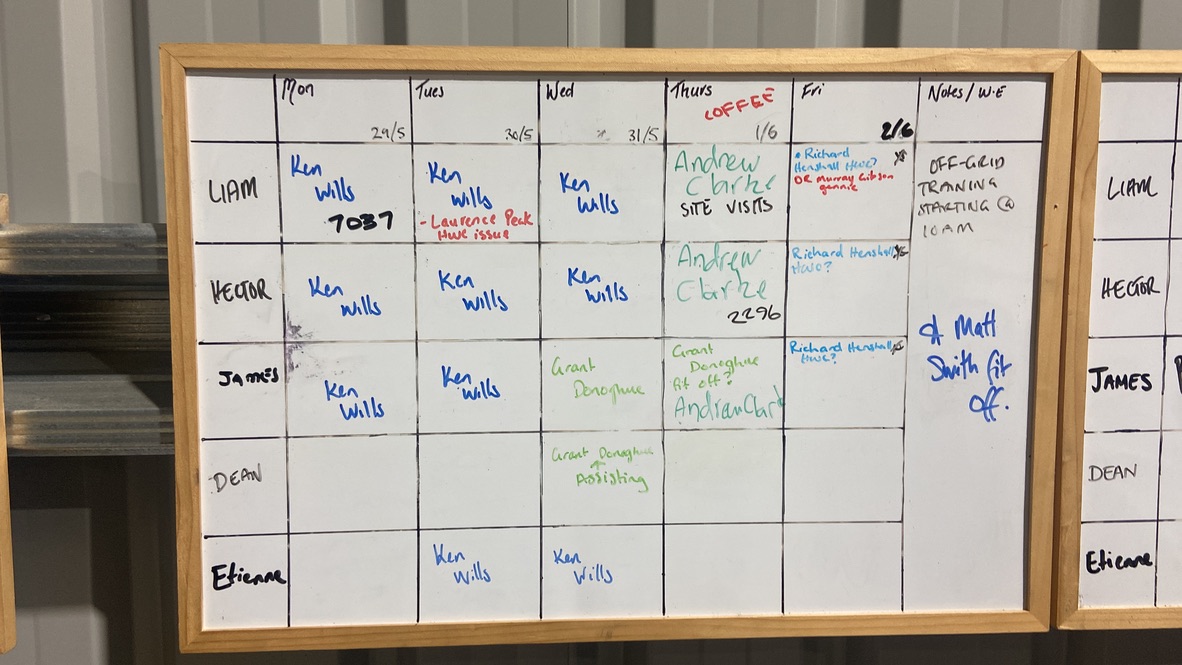 Mon
Tues
Wed
Thurs
Fri
Notes/W.E
COFFEE
29/5
30/5
31/5
1/6
2/6
LIAM
Ken
Wills
7037
Ken
Wills
- Laurence Peak
Hwc issue
Ken
Wills
Andrew
Clarke
SITE VISITS
• Richard
Henshall Hwc?
OR Murray Gibson
gennie
OFF-GRID
TRAINING
STARTING @
10AM
HECTOR
Ken
Wills
Ken
Wills
Ken
Wills
Andrew
Clarke
2296
Richard Henshall
Hwc?
& Matt
Smith fit
off.
JAMES
Ken
Wills
Ken
Wills
Grant
Donoghue
Grant
Donoghue
fit off?
Andrew Clark
Richard Henshall
Hwc?
DEAN
Grant Donoghue
Assisting
Etienne
Ken
Wills
Ken
Wills
LIAM
HECTOR
JAMES
DEAN
Etienne